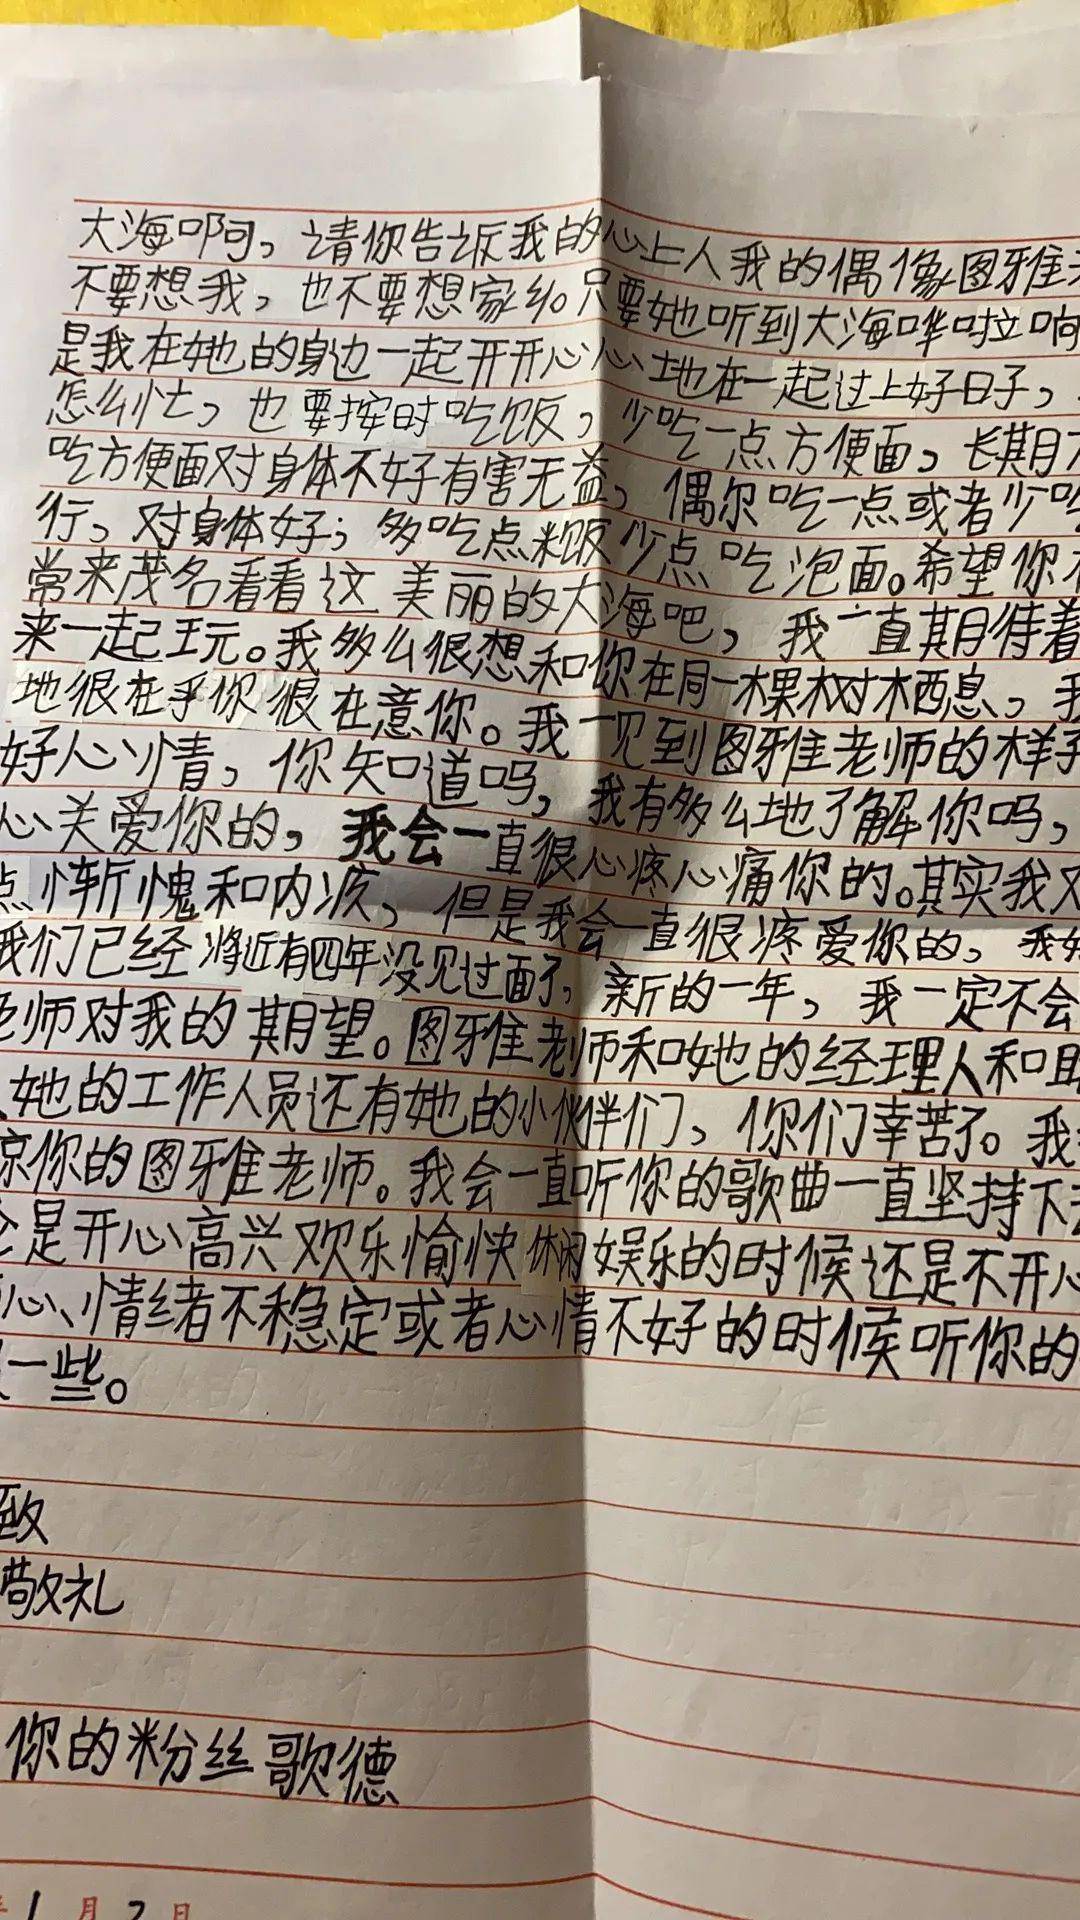 大海啊，请你告诉我的心上人我的偶像图雅
不要想我，也不要想家乡。只要她听到大海哗啦响
是我在她的身边一起开开心心地在一起过上好日子，
怎么忙，也要按时吃饭，少吃一点方便面，长期
吃方便面对身体不好有害无益，偶尔吃一点或者少吃
行，对身体好；多吃点米饭少点吃泡面。希望你
常来茂名看看这美丽的大海吧，我一直期待着
来一起玩。我多么很想和你在同一棵树栖息，我
地很在乎你很在意你。我一见到图雅老师的样子
好心情，你知道吗，我有多么地了解你吗，
心关爱你的，我会一直很心疼心痛你的。其实我
点惭愧和内疚，但是我会一直很疼爱你的，我
我们已经将近有四年没见过面了，新的一年，我一定不会
老师对我的期望。图雅老师和她的经理人和
她的工作人员还有她的小伙伴们，你们幸苦了。我
你的图雅老师。我会一直听你的歌曲一直坚持下去
是开心高兴欢乐愉快休闲娱乐的时候还是不开心
心、情绪不稳定或者心情不好的时候听你的
一些。
致
敬礼
你的粉丝歌德
1月2日